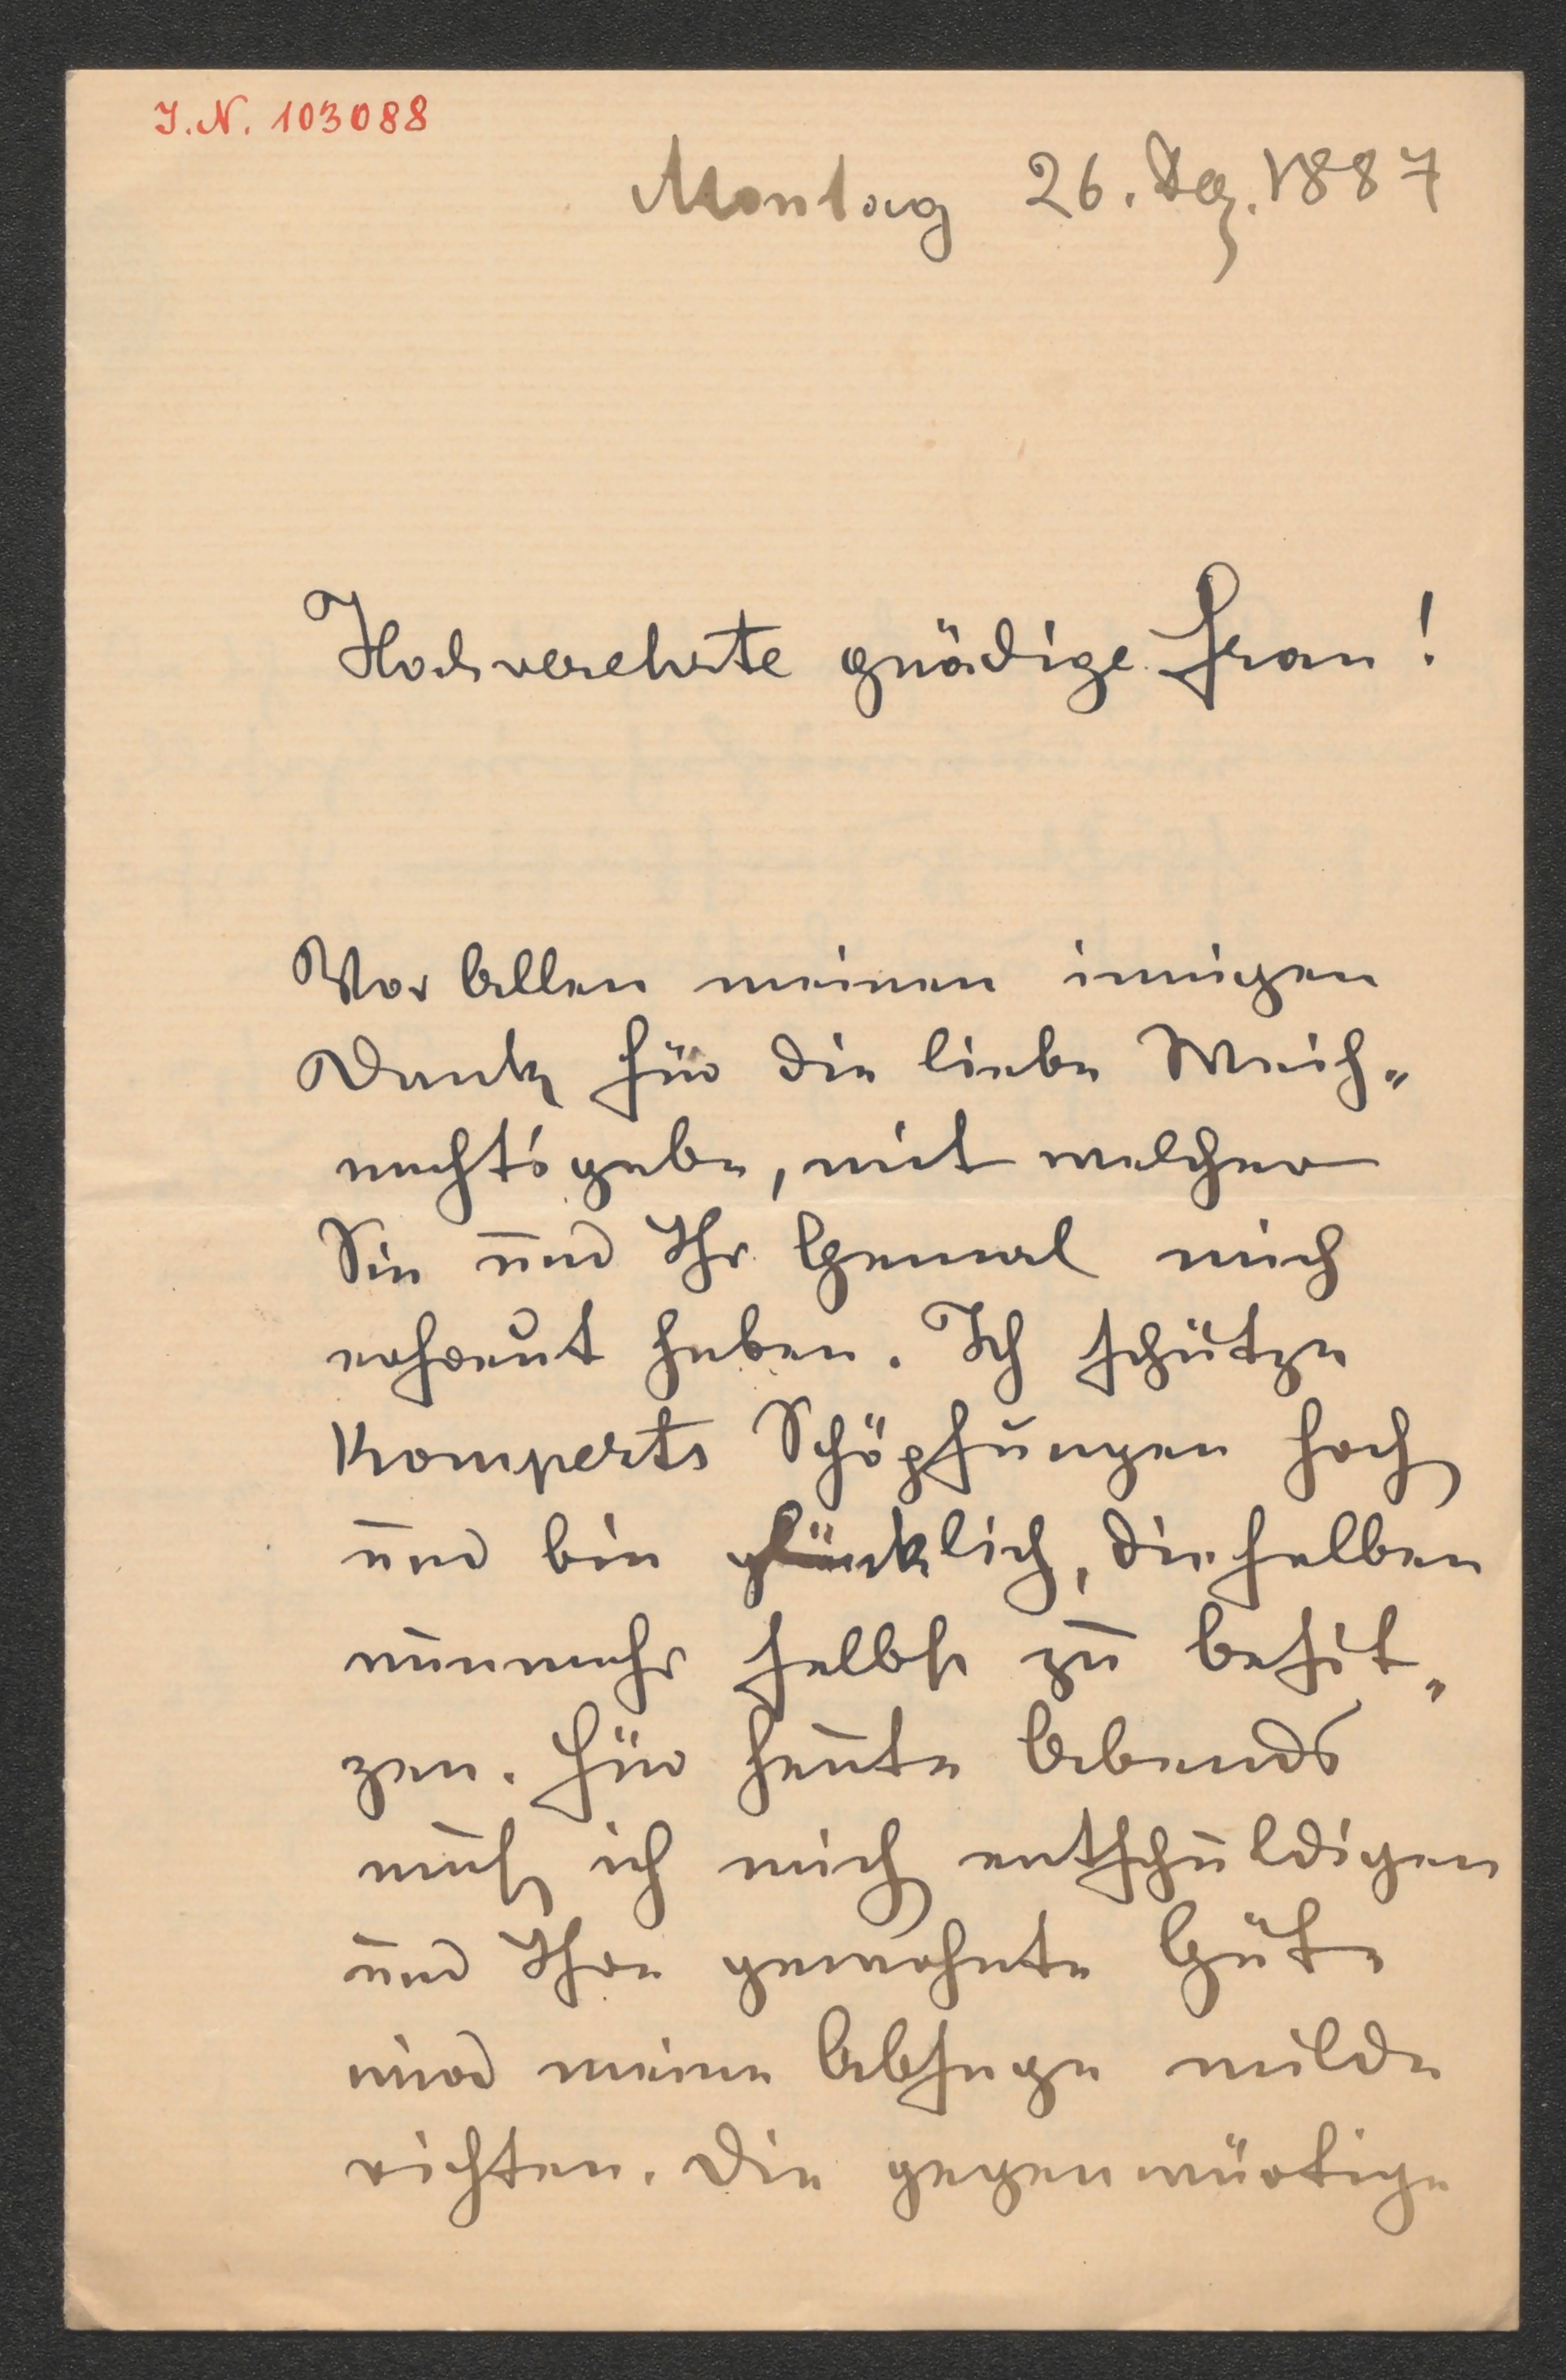 I.N. 103088
Montag 26. Dez. 1887
Hochverehrte gnädige Frau!
Vor Allen meinen innigen
Dank für die liebe Weih-
nachtsgabe, mit welcher
Sie und Ihr Gemal mich
erfreut haben. Ich schätze
Komperts Schöpfungen hoch
und bin glücklich, dieselben
nunmehr selbst zu besit-
zen. Für heute Abends
muß ich mich entschuldigen
und Ihre gewohnte Güte
wird meine Absage milde
richten. Die gegenwärtige